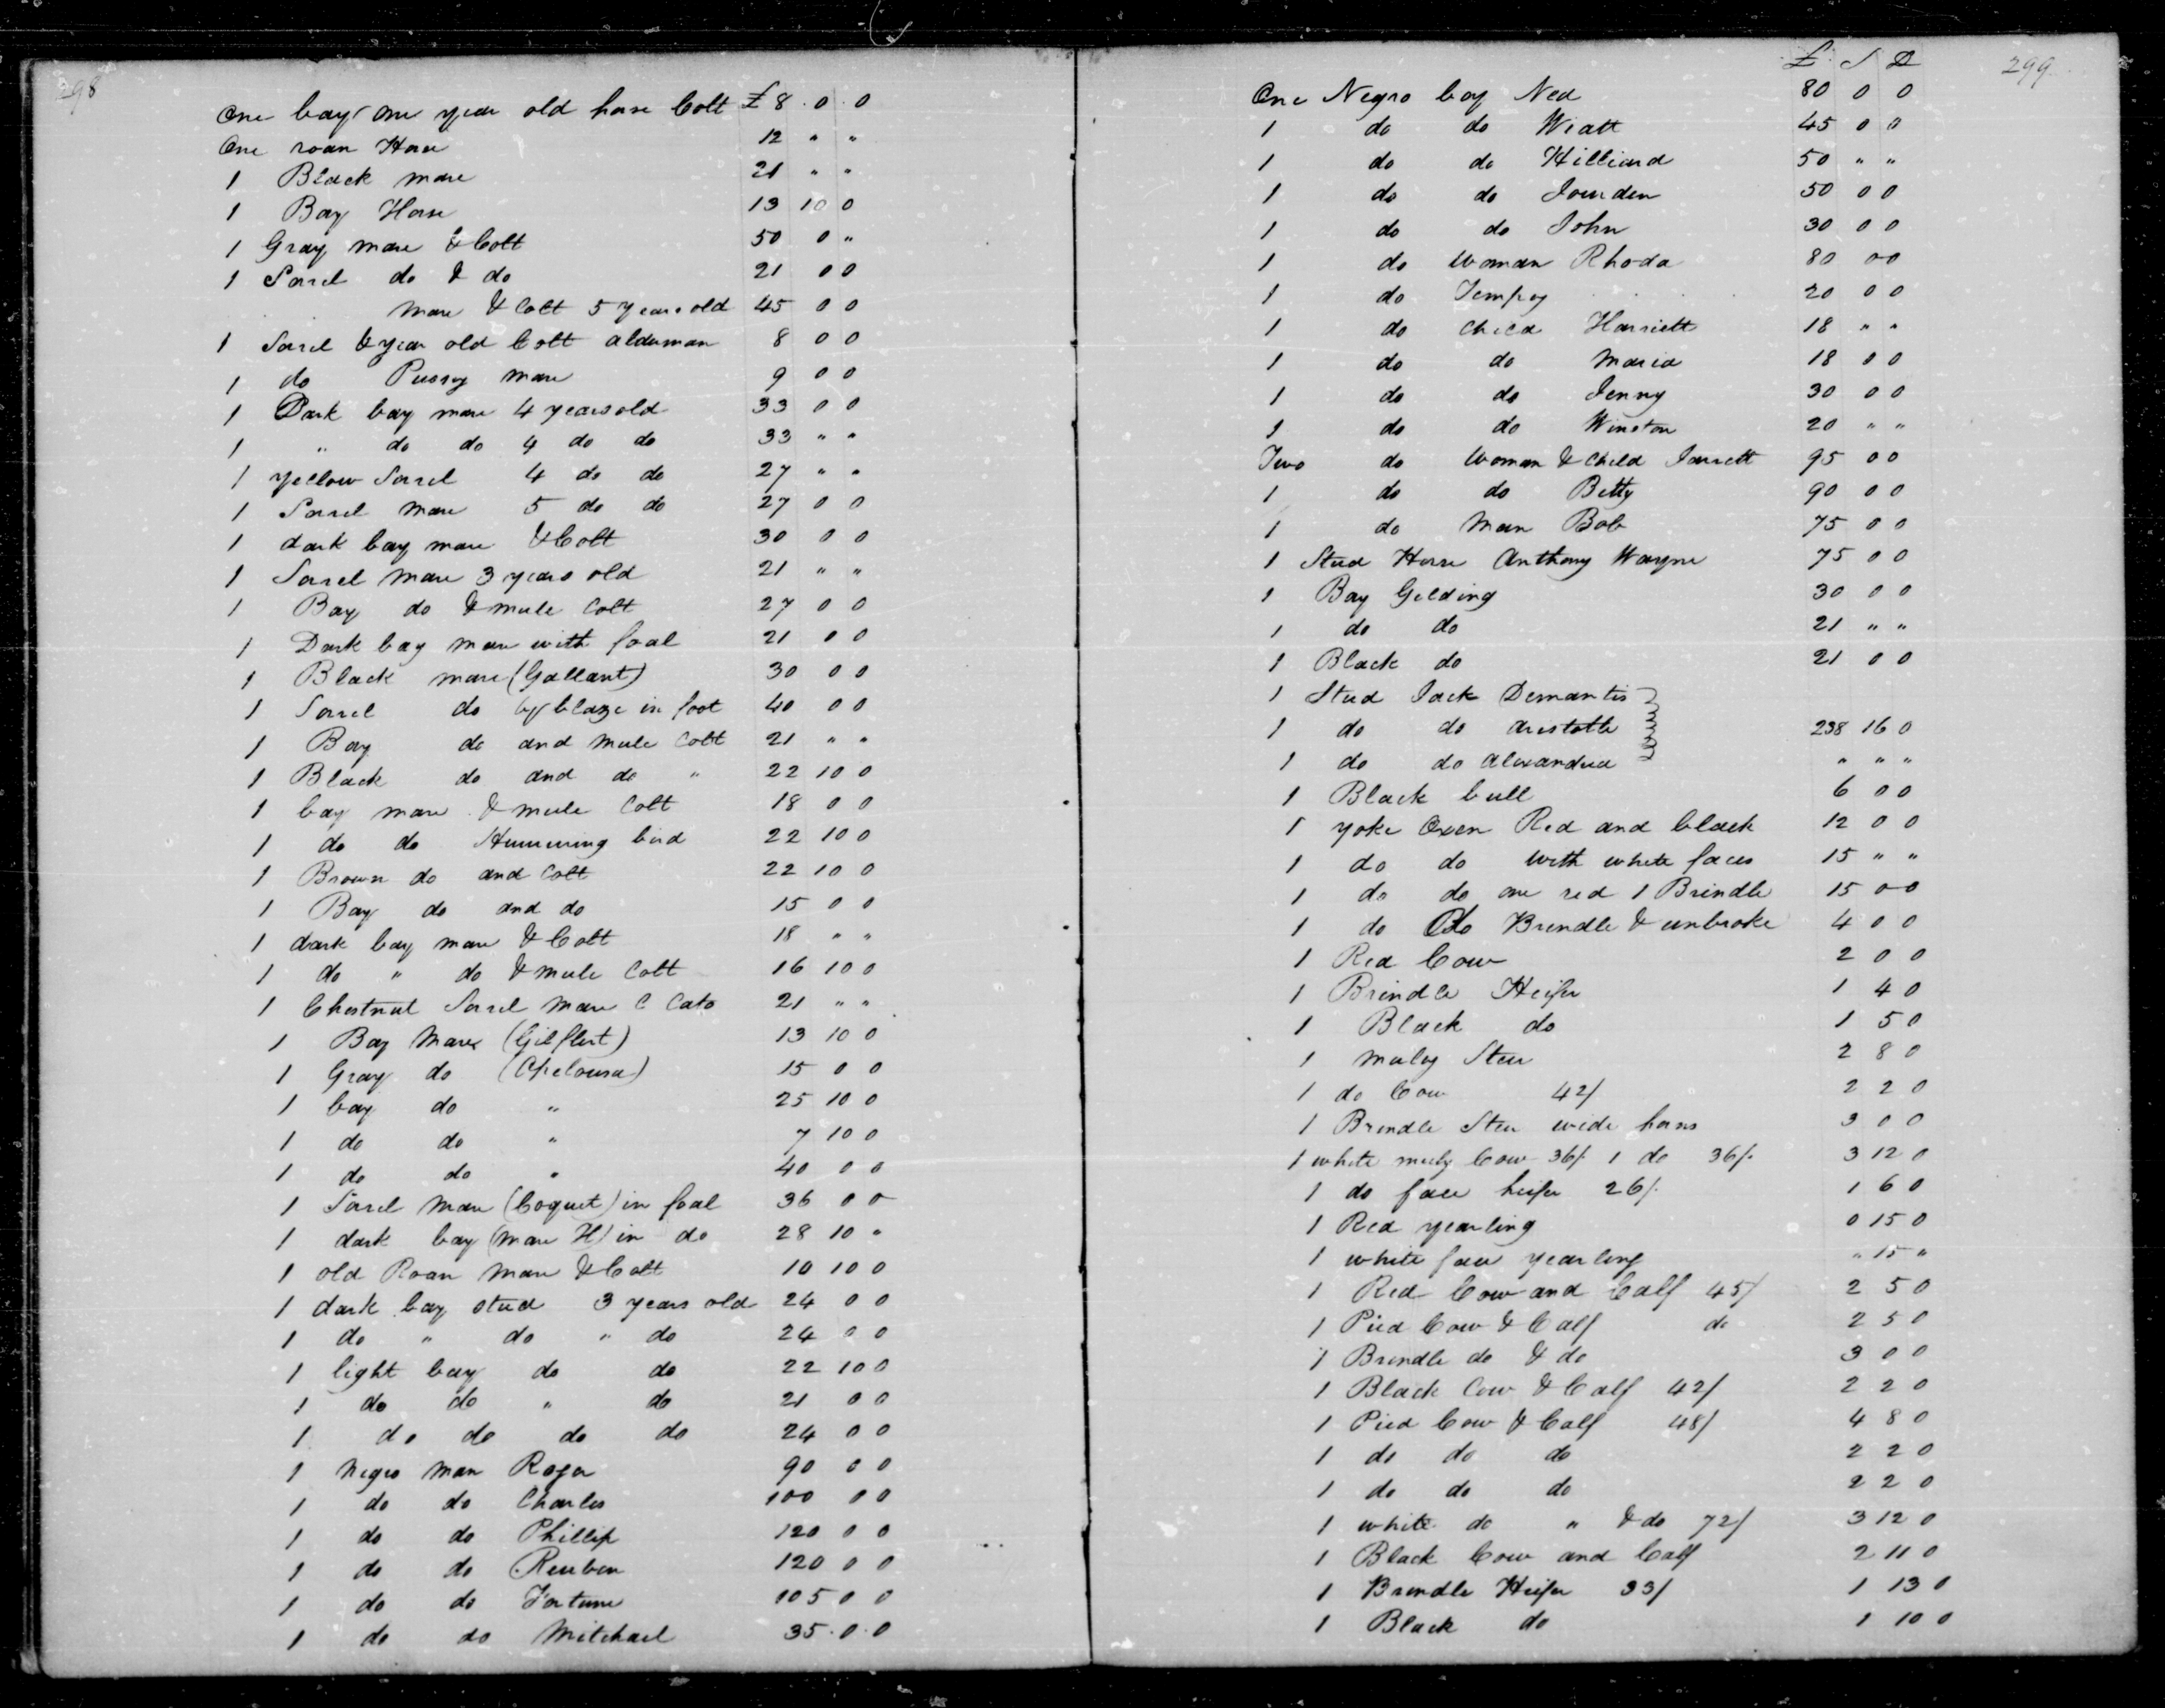 298
One bay one year old horse Colt £ 8 . 0 . 0
One roan Horse 12 " "
1 Black mare 21 " "
1 Bay Horse 13 10 0
1 Gray mare & Colt 50 0 "
1 Sorrel do & do 21 0 0
mare & Colt 5 years old 45 0 0
1 Sorrel & year old Colt alderman 8 0 0
1 do mare 9 0 0
1 Dark bay mare 4 years old 33 0 0
1 " do do 4 do do 33 " "
1 yellow Sorrel 4 do do 27 " "
1 Sorrel mare 5 do do 27 0 0
1 dark bay mare & Colt 30 0 0
1 Sorrel mare 3 years old 21 " "
1 Bay do & mule Colt 27 0 0
1 Dark bay mare with foal 21 0 0
1 Black mare (Gallant) 30 0 0
1 Sorrel do by blaze in foot 40 0 0
1 Bay do and mule Colt 21 " "
1 Black do and do " 22 10 0
1 bay mare & mule Colt 18 0 0
1 do do Humming bird 22 10 0
1 Brown do and Colt 22 10 0
1 Bay do and do 15 0 0
1 dark bay mare & Colt 18 " "
1 do " do & mule Colt 16 10 0
1 Chestnut Sorrel mare C Cato 21 " "
1 Bay Mare (Gilflert) 13 10 0
1 Gray do 15 0 0
1 bay do " 25 10 0
1 do do " 7 10 0
1 do do " 40 0 0
1 Sorrel Mare (Coquet) in foal 36 0 0
1 dark bay (mare H) in do 28 10 "
1 old Roan Mare & Colt 10 10 0
1 dark bay stud 3 years old 24 0 0
1 do " do " do 24 0 0
1 light bay do do 22 10 0
1 do do " do 21 0 0
1 do do do do 24 0 0
1 Negro Man Roger 90 0 0
1 do do Charles 100 0 0
1 do do Phillip 120 0 0
1 do do Reuben 120 0 0
1 do do Fortune 105 0 0
1 do do Mitchael 35 . 0 . 0
£ S D 299
One Negro boy Ned 80 0 0
1 do do Wiatt 45 0 0
1 do do Hilliard 50 " "
1 do do Jourden 50 0 0
1 do do John 30 0 0
1 do Woman Rhoda 80 0 0
1 do Tempey 20 0 0
1 do Child Harriett 18 " "
1 do do Maria 18 0 0
1 do do Jenny 30 0 0
1 do do Winston 20 " "
Two do Woman & Child Jarrett 95 0 0
1 do do Betty 90 0 0
1 do Man Bob 75 0 0
1 Stud Horse Anthony Wayne 75 0 0
1 Bay Gelding 30 0 0
1 do do 21 " "
1 Black do 21 0 0
1 Stud Jack Demantis
1 do do Aristotle 238 16 0
1 do do Alexandria " " "
1 Black bull 6 0 0
1 yoke Oxen Red and black 12 0 0
1 do do with white faces 15 " "
1 do do one red 1 Brindle 15 0 0
1 do Do Brindle & unbroke 4 0 0
1 Red Cow 2 0 0
1 Brindle Heifer 1 4 0
1 Black do 1 5 0
1 muley Steer 2 8 0
1 do Cow 42/ 2 2 0
1 Brindle Steer wide horns 3 0 0
1 white muly Cow 36/. 1 do 36/. 3 12 0
1 do face heifer 26/. 1 6 0
1 Red yearling 0 15 0
1 white face yearling " 15 "
1 Red Cow and Calf 45/ 2 5 0
1 Pied Cow & Calf do 2 5 0
1 Brindle do & do 3 0 0
1 Black Cow & Calf 42/ 2 2 0
1 Pied Cow & Calf 48/ 4 8 0
1 do do do 2 2 0
1 do do do 2 2 0
1 white do " & do 72/ 3 12 0
1 Black Cow and Calf 2 11 0
1 Brindle Heifer 33/ 1 13 0
1 Black do 1 10 0